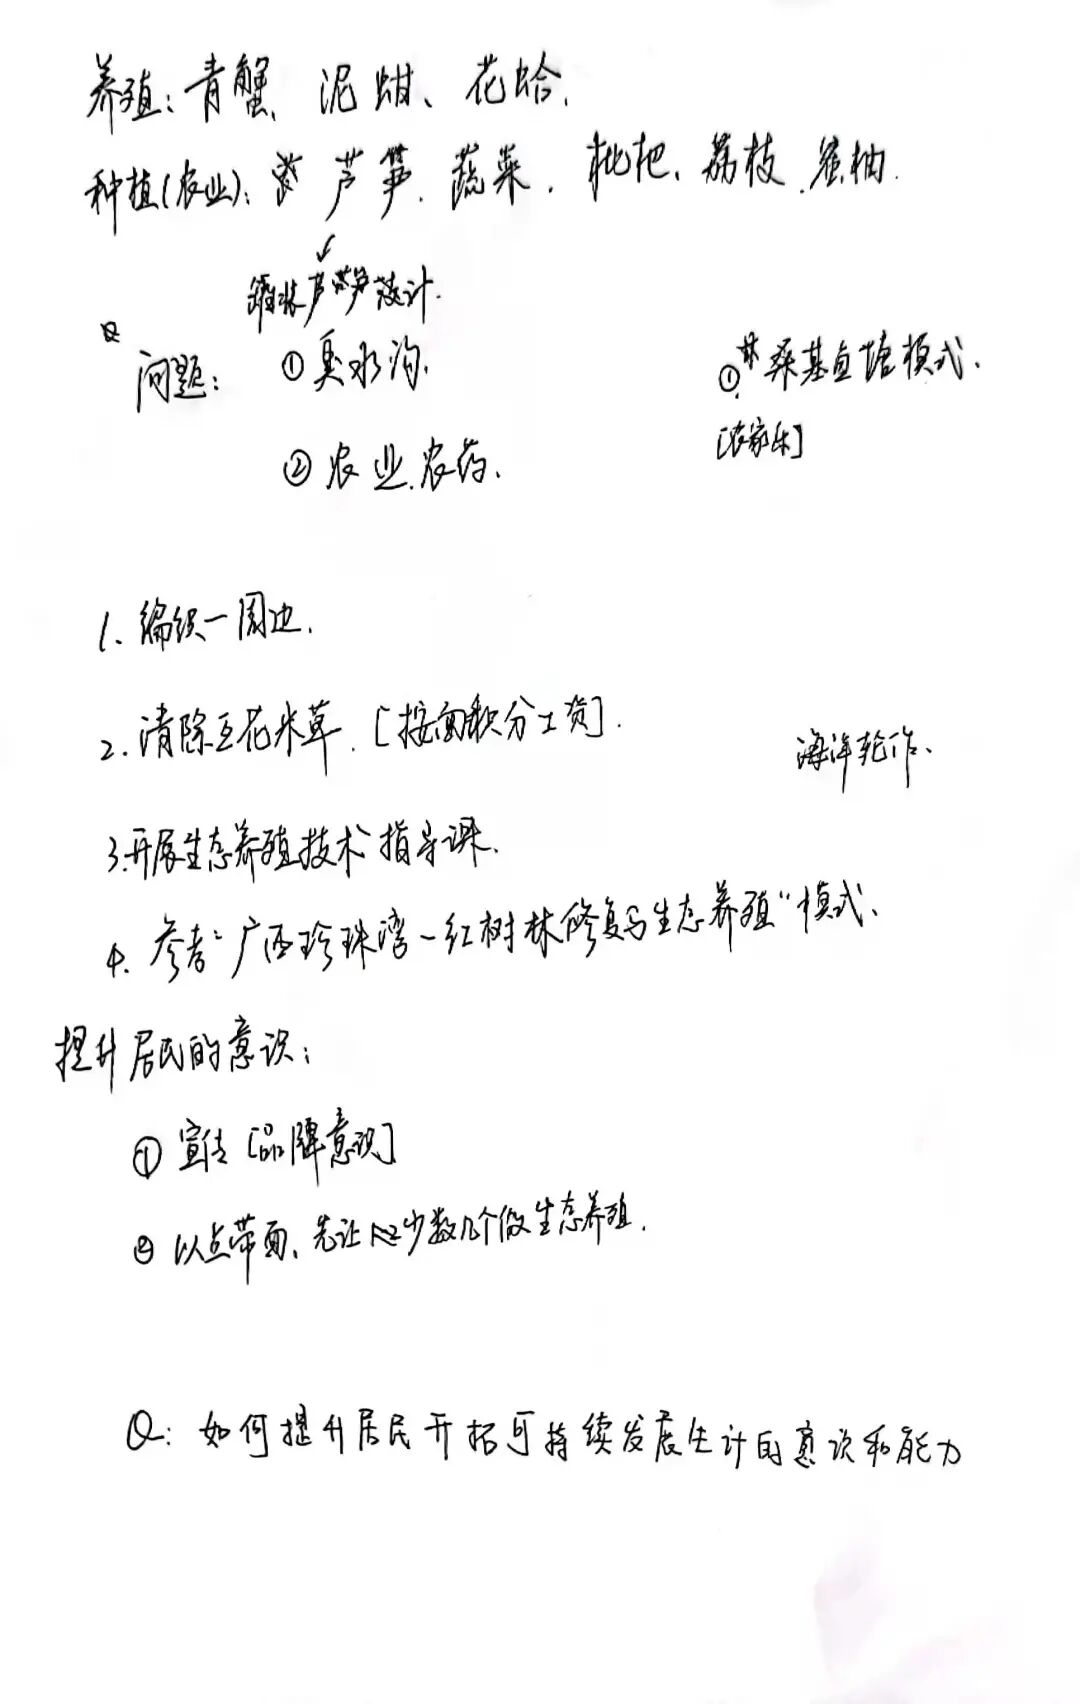 养殖：青蟹、泥蚶、花蛤.
种植(农业)：芦笋.蔬菜.枇杷、荔枝.蜜柚.
芦笋设计.
问题：①臭水沟.
②农业.农药.
①桑基鱼塘模式.
[农家乐]
1、编织一周边.
2.清除互花米草.[按面积分工资].
海洋轮作.
3.开展生态养殖技术指导课.
4.参考“广西珍珠湾-红树林修复与生态养殖”模式.
提升居民的意识：
①宣传[品牌意识]
②以点带面、先让少数几个做生态养殖.
Q：如何提升居民开拓可持续发展生计的意识和能力